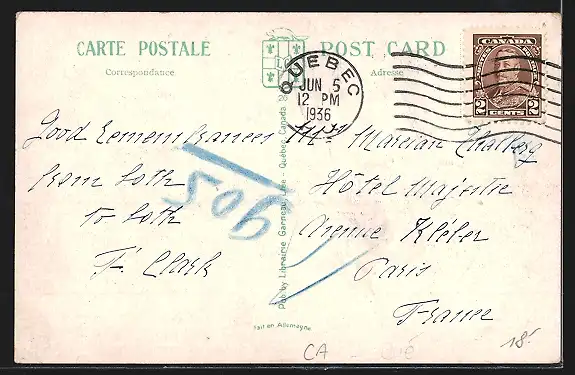 CARTE POSTALE
POST CARD
Correspondance
Adresse
QUEBEC
JUN 5
12 PM
1936
CANADA
2 CENTS 2
Good Remembrances
from both
to both
F. Clark
Marcian
Hôtel Majestic
Avenue Kléber
Paris
France
506
Pub by Librairie Garneau Ltée - Québec Canada
Fait en Allemagne
CA
18